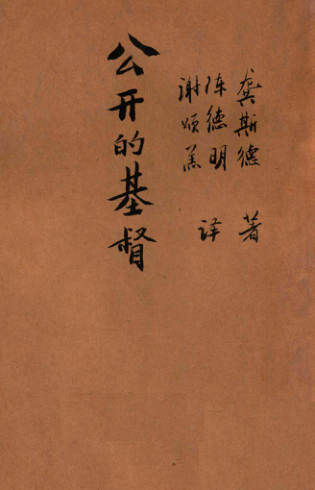 龚斯德 著
陈德明
谢颂羔
译
公开的基督